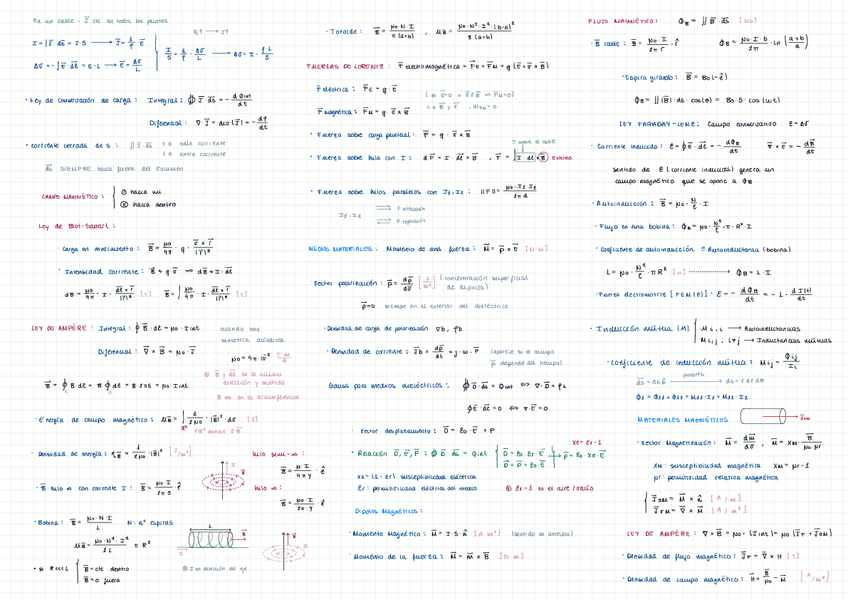 En un cable : J⃗ cte en todos los puntos
E↑ → J↑
I = ∫J⃗·ds⃗ = J·S → J⃗ = 1/ρ · E⃗
ΔV = -∫E⃗·dl⃗ = E·L → E⃗ = ΔV/L
I/S = 1/ρ · ΔV/L → ΔV = I · ρL/S
· Ley de conservación de carga : Integral : ∯ J⃗·ds⃗ = - dQint/dt
Diferencial : ∇·J⃗ = div(J⃗) = - dρ/dt
· Corriente cerrada de S : ∬ J⃗·ds⃗ > 0 sale corriente
< 0 entra corriente
ds⃗ SIEMPRE hacia fuera del volumen
CAMPO MAGNÉTICO : ⊙ hacia mí
⊗ hacia dentro
Ley de Biot-Savart :
· Carga en movimiento : B⃗ = μ0/4π · q · v⃗ x r⃗/|r⃗|³
· Intensidad corriente : B⃗ ≈ q v⃗ ⇒ dB = I·dl⃗
dB = μ0/4π · I · dl⃗ x r⃗/|r⃗|³ [T] B⃗ = ∫ μ0/4π · I · dl⃗ x r⃗/|r⃗|³ [T]
LEY DE AMPÈRE : Integral : ∮ B⃗·dl⃗ = μ0·Iint cuando hay
simetría cilíndrica
Diferencial : ∇ x B⃗ = μ0·J⃗
μ0 = 4π·10⁻⁷
B⃗ y dl⃗ en la misma
dirección y sentido
B⃗ = ∮ B dl = B ∮ dl = B 2πs = μ0·Iint
B cte en la circunferencia
· Energía de campo magnético : UB = ∫ 1/2μ0 · |B⃗|² · dv [J]
· Densidad de energía : uB = 1/2μ0 · |B⃗|² [J/m³]
hilo semi-∞ :
· B⃗ hilo ∞ con corriente I : B⃗ = μ0·I/2πs · φ̂
hilo ∞ :
· Bobina : B⃗ = μ0·N·I/L N : nº espiras
UB = μ0·N²·I²/2L π R²
I en dirección del eje
· si R<<L B⃗ = cte dentro
B⃗ = 0 fuera
· Toroide : B⃗ = μ0·N·I/π(a+b) , UB = μ0·N²·I²·(b-a)²/8(a+b)
FUERZAS DE LORENTZ : F⃗ electromagnética = F⃗E + F⃗M = q(E⃗ + v⃗ x B⃗)
F⃗ eléctrica : F⃗E = q·E⃗
F⃗ magnética : F⃗M = q·v⃗ x B⃗
· Fuerza sobre carga puntual : F⃗ = q·v⃗ x B⃗
I sobre el cable
· Fuerza sobre hilo con I : dF⃗ = I dl⃗ x B⃗ , F⃗ = ∫ I dl⃗ x B⃗ Externo
· Fuerza sobre hilos paralelos con I1, I2 : ||F|| = μ0·I1·I2/2πd
I1, I2 F atracción
F repulsión
MEDIOS MATERIALES : Momento de una fuerza : M⃗ = P⃗ x E⃗ [N·m]
· Vector polarización : P⃗ = dp⃗/dv⃗ [C/m²] (concentración superficial
de dipolos)
P⃗=0 siempre en el exterior del dieléctrico
· Densidad de carga de polarización σb, ρb
· Densidad de corriente : J⃗b = dP⃗/dt = j·w·P⃗ (aparece si el campo
P⃗ depende del tiempo)
Gauss para medios dieléctricos : ∯ D⃗·ds = Qint ⇔ ∇·D⃗ = ρL
∮E⃗·dl⃗ = 0 ⇔ ∇·E⃗ = 0
· Vector desplazamiento : D⃗ = ε0·E⃗ + P
· Relación D⃗, E⃗, P⃗ : ∯ D⃗·ds = QLibI D⃗ = ε0·εr·E⃗
D⃗ = P⃗ + ε0·E⃗
Xe = εr-1
P⃗ = ε0·Xe·E⃗
Xe = (1-εr) susceptibilidad eléctrica
εr : permitividad eléctrica del medio εr=1 en el aire/vacío
Dipolos Magnéticos :
· Momento Magnético : M⃗ = I·S·n̂ [A m²] (sentido su derecha)
· Momento de la fuerza : M⃗ = m⃗ x B⃗ [N·m]
FLUJO MAGNÉTICO : ΦB = ∬ B⃗·ds⃗ [Wb]
· B⃗ cable : B⃗ = μ0·I/2πr · φ̂ ΦB = μ0·I·b/2π · ln(a+b/a)
· Espira girando : B⃗ = B0(-ẑ)
ΦB = ∬|B|·ds·cos(θ) = B0·S·cos(wt)
LEY FARADAY-LENZ : Campo conservativo E=ΔV
· Corriente inducida : E = ∮E⃗·dl⃗ = - dΦB/dt ∇ x E⃗ = - dB⃗/dt
sentido de E (corriente inducida) genera un
campo magnético que se opone a ΦB
· Autoinducción : B⃗ = μ0·N/l·I
· Flujo en una bobina : ΦB = μ0·N²/l·π·R²·I
· Coeficiente de autoinducción = Autoinductancia (bobina)
L = μ0·N²/l·π R² [H] → ΦB = L·I
· Fuerza electromotriz [FEM(E)] : E = - dΦB/dt = -L·dI(t)/dt
· Inducción mútua (M) Mi,i → Autoinductancias
Mi,j ; i≠j → Inductancias mútuas
· Coeficiente de inducción mútua : Mij = Φij/Ii
polares
ds=ds ẑ → ds=r dr dθ
MATERIALES MAGNÉTICOS
· Vector Magnetización : M⃗ = dm⃗/dv , M⃗ = Xm·B⃗/μ0μr
Xm : susceptibilidad magnética Xm = μr-1
μr : permitividad relativa magnética
J⃗sM = M⃗ x n̂ [A/m]
J⃗rM = ∇⃗ x M⃗ [A/m²]
LEY DE AMPÈRE : ∇ x B⃗ = μ0·(Jint) = μ0(J⃗r + J⃗sM)
· Densidad de flujo magnético : J⃗r = ∇⃗ x H [T]
· Densidad de campo magnético : H⃗ = B⃗/μ0 - M⃗ [A/m²]